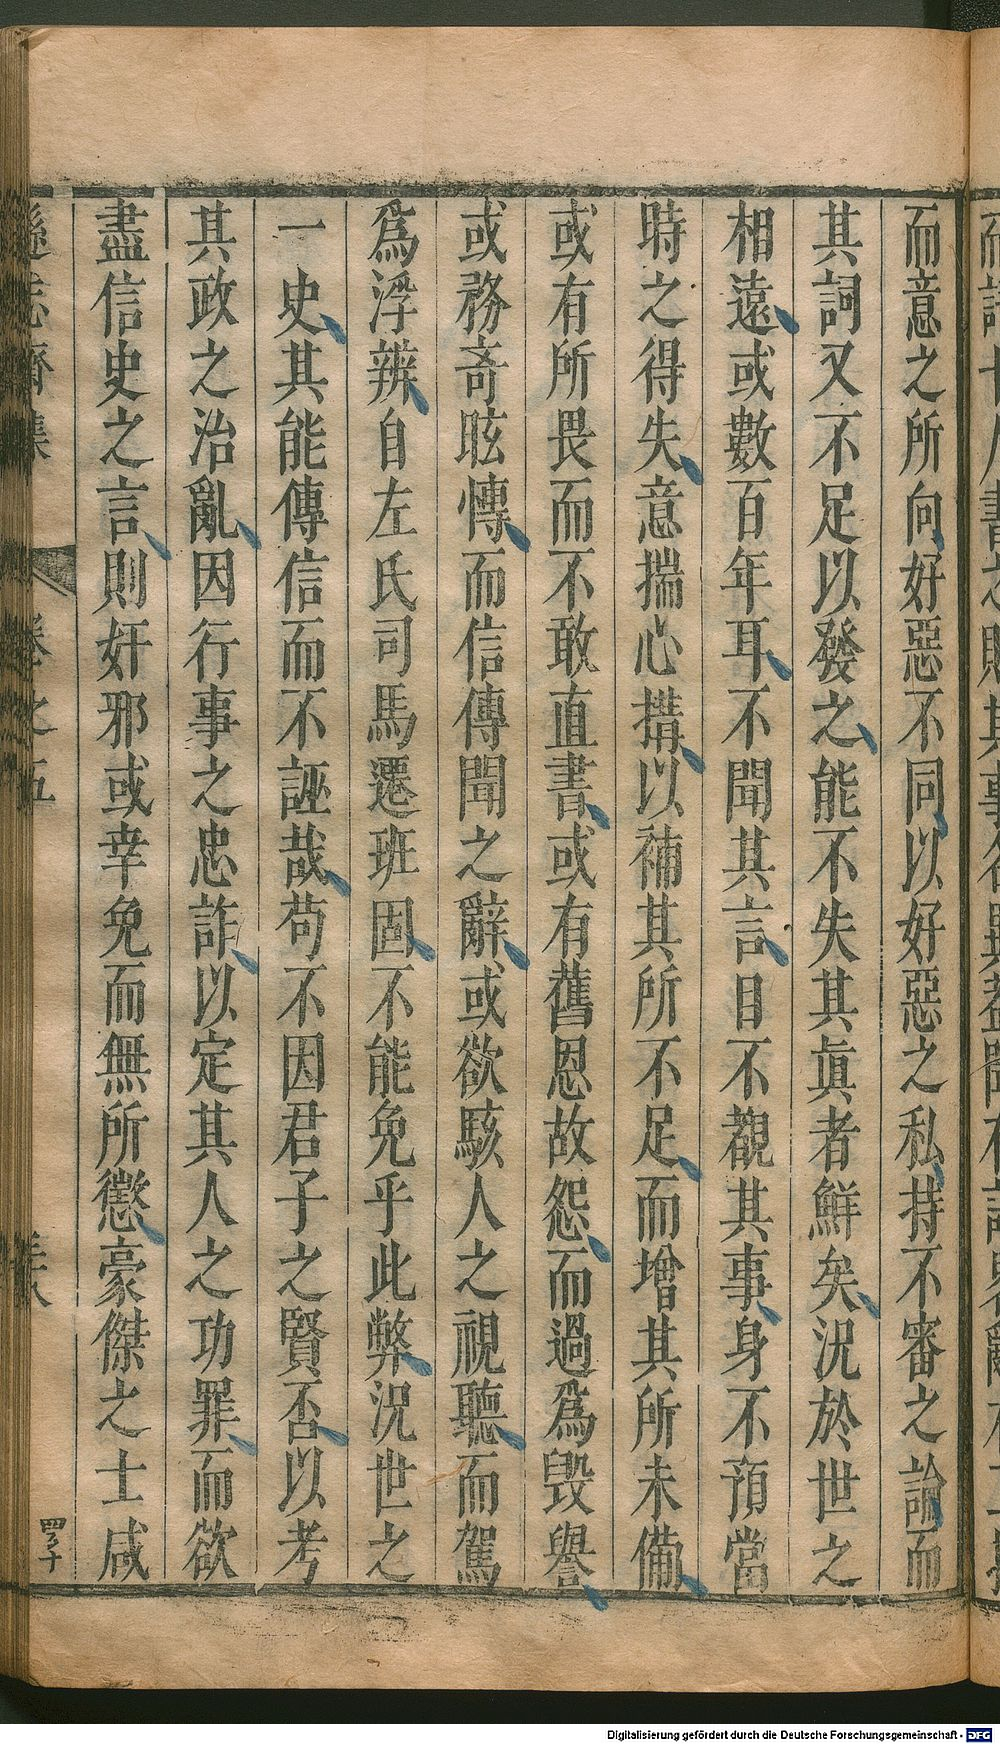 而意之所向好惡不同以好惡之私持不審之論而
其詞又不足以發之能不失其眞者鮮矣况於世之
相遠或數百年耳不聞其言目不覩其事身不預當
時之得失意揣心搆以補其所不足而增其所未備
或有所畏而不敢直書或有舊恩故怨而過爲毀譽
或務竒眩愽而信傳聞之辭或欲駭人之視聽而駕
爲浮辨自左氏司馬遷班固不能免乎此弊况世之
一史其能傳信而不誣哉苟不因君子之賢否以考
其政之治亂因行事之忠詐以定其人之功罪而欲
盡信史之言則奸邪或幸免而無所懲豪傑之士咸
遜志齋集
卷之五
Digitalisierung gefördert durch die Deutsche Forschungsgemeinschaft - DFG